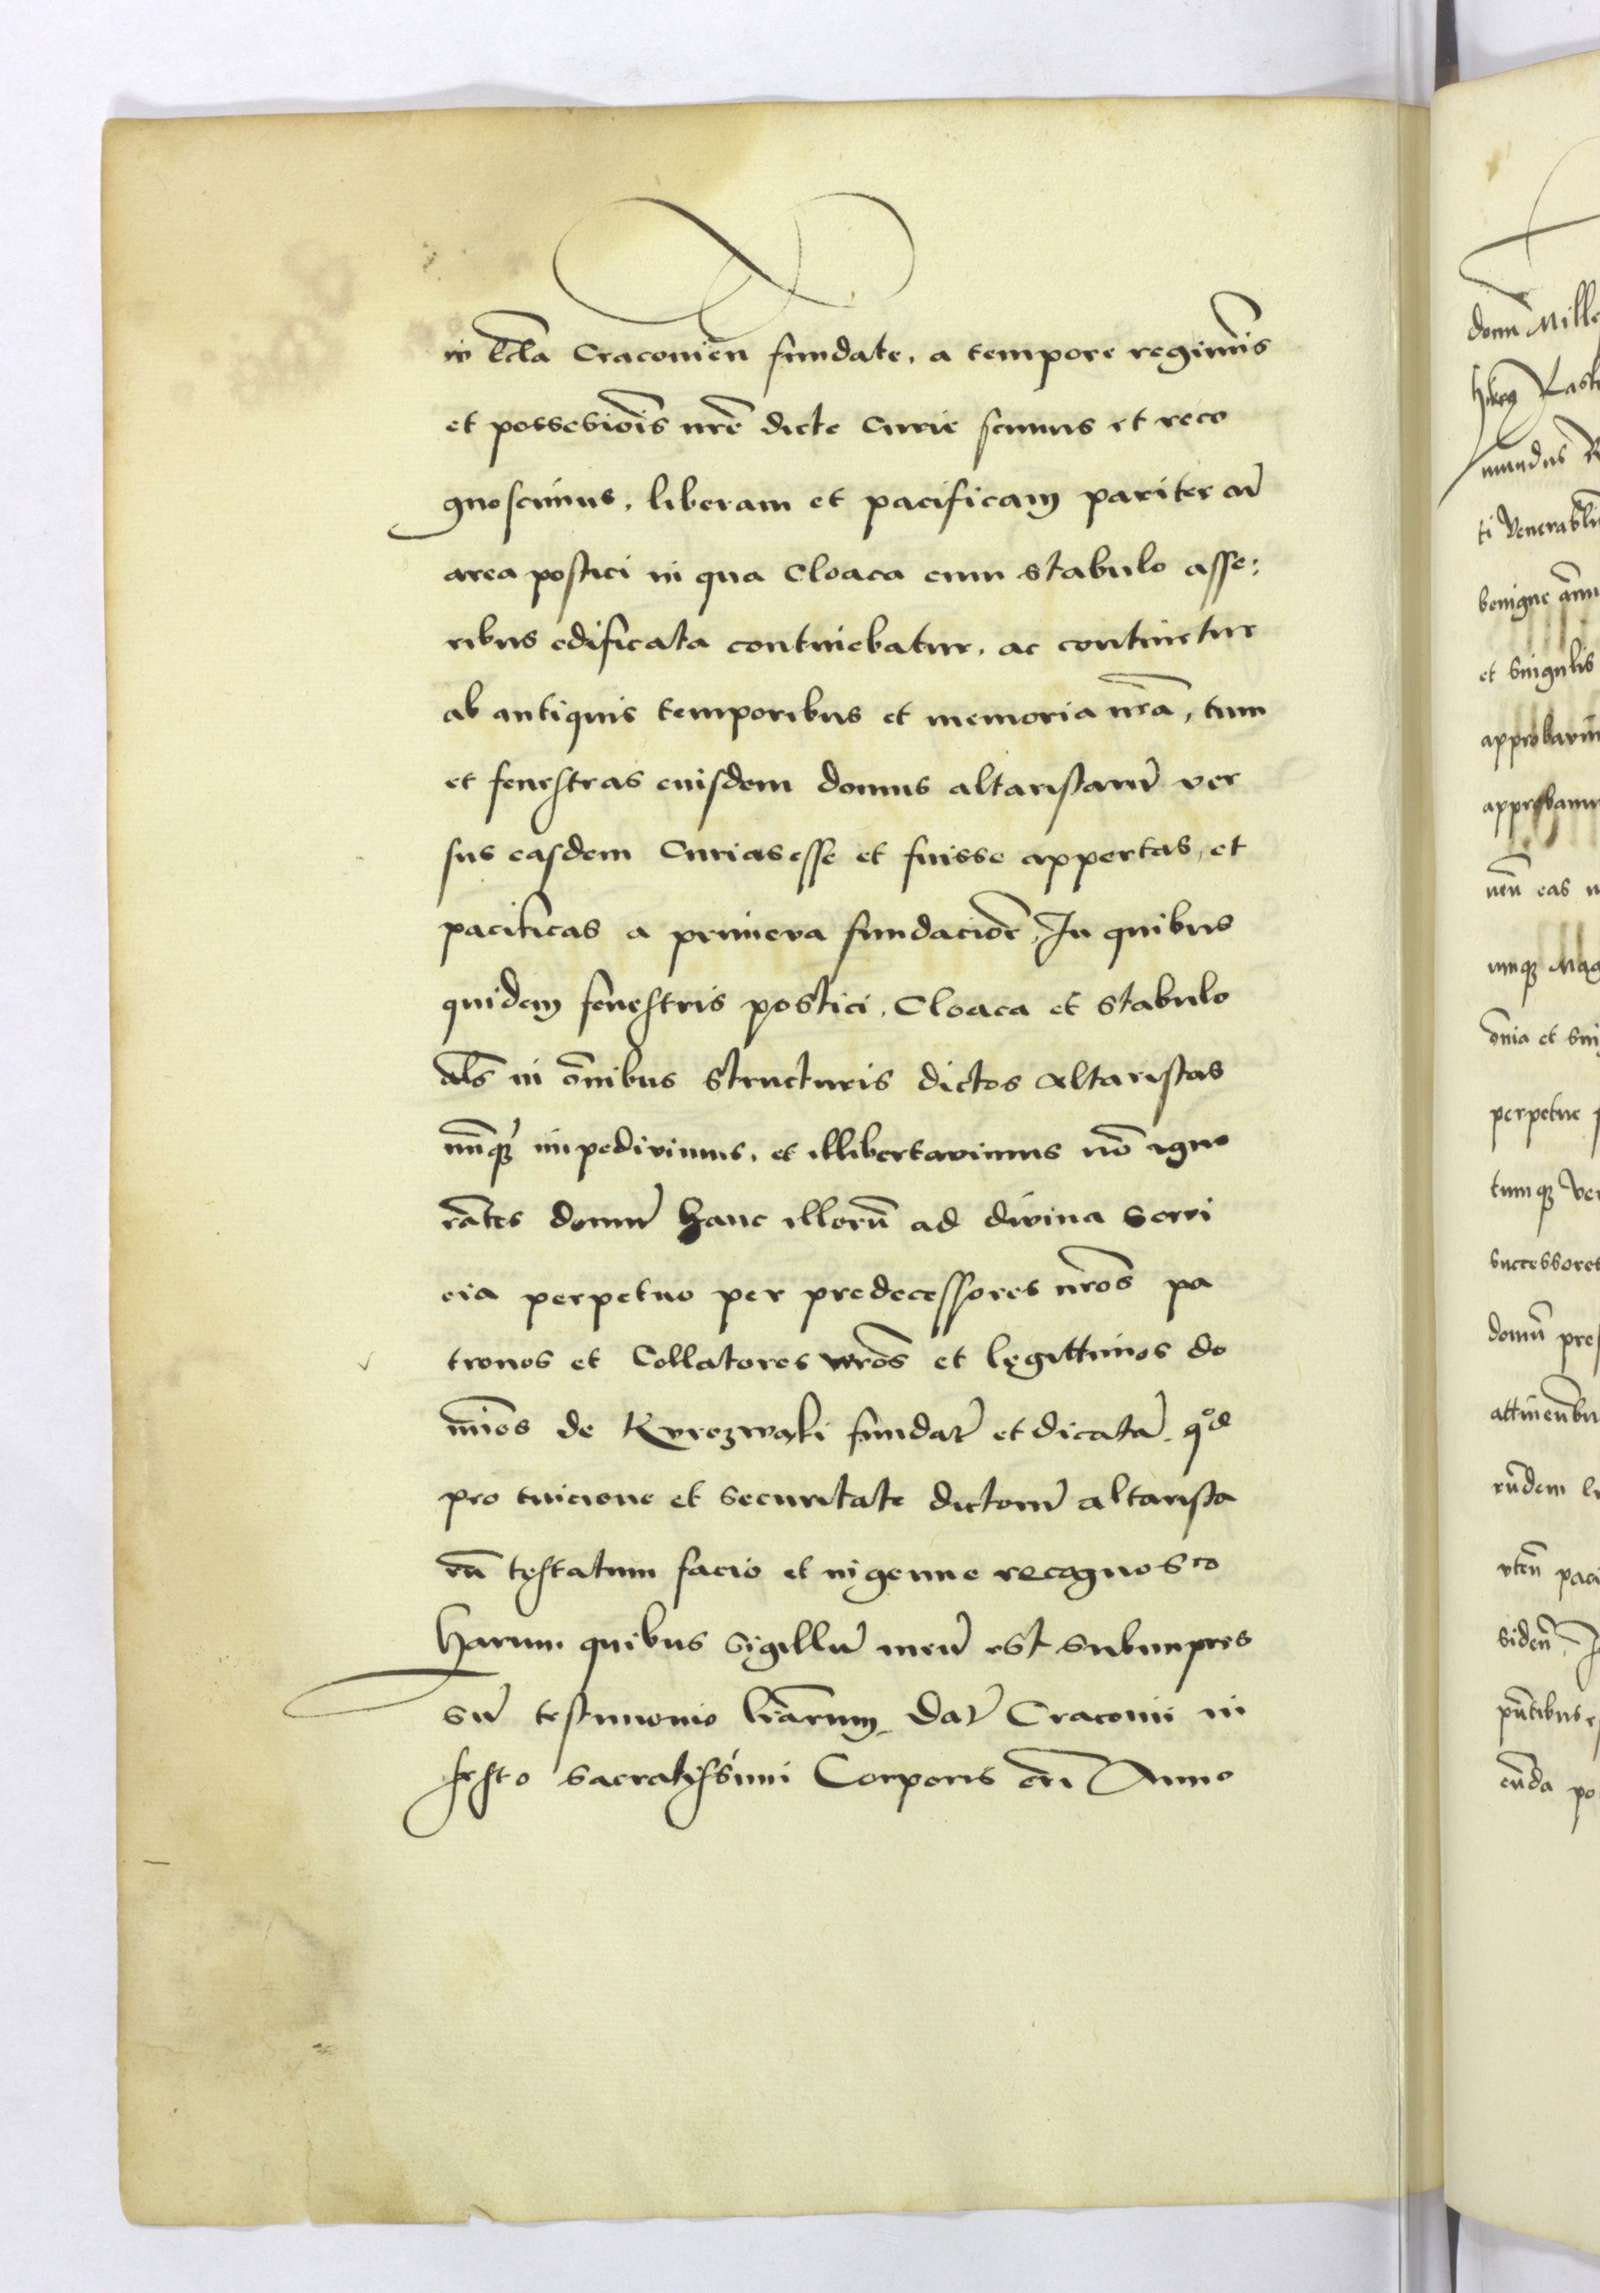 in Eccl̃a Craconień fundate, a tempore regimĩs
et possessiõis nr̃e dicte Curie scimus et reco
gnoscimus, liberam et pacificam pariter cũ
area postici in qua Cloaca cum stabulo asse:
ribus edificata continebatur, ac continetur
ab antiquis temporibus et memoria nr̃a, tum
et fenestras eiusdem domus altaristarũ ver
sus easdem Curias esse et fuisse appertas, et
pacificas a primeva fundaciõe, In quibus
quidem fenestris postici, Cloaca et stabulo
al̃s in õnibus structuris dictos altaristas
nũq̃ impedivimus, et illibertavimus nõ igno
rãtes domũ hanc illorũ ad divina servi
cia perpetuo per predecessores nr̃os pa
tronos et Collatores vr̃os et legittimos do
mĩos de Kurozwaki fundatã et dicatã, qᵒd
pro tuicione et securitate dictorũ altarista
rũ testatum facio et ingenue recognosco
harum quibus sigillũ meũ est subimpres
sũ testimonio lr̃arum, Datũ Cracovii in
festo sacratissimi Corporis cr̃i Anno
domi Mille
ti Venerabli
benigne
et singulis
approbavi
eas
õnia et sin
perpetue
tumq̃ ve
successores
domũ pres
rũdem
paci
sideñ, I
pñtibus